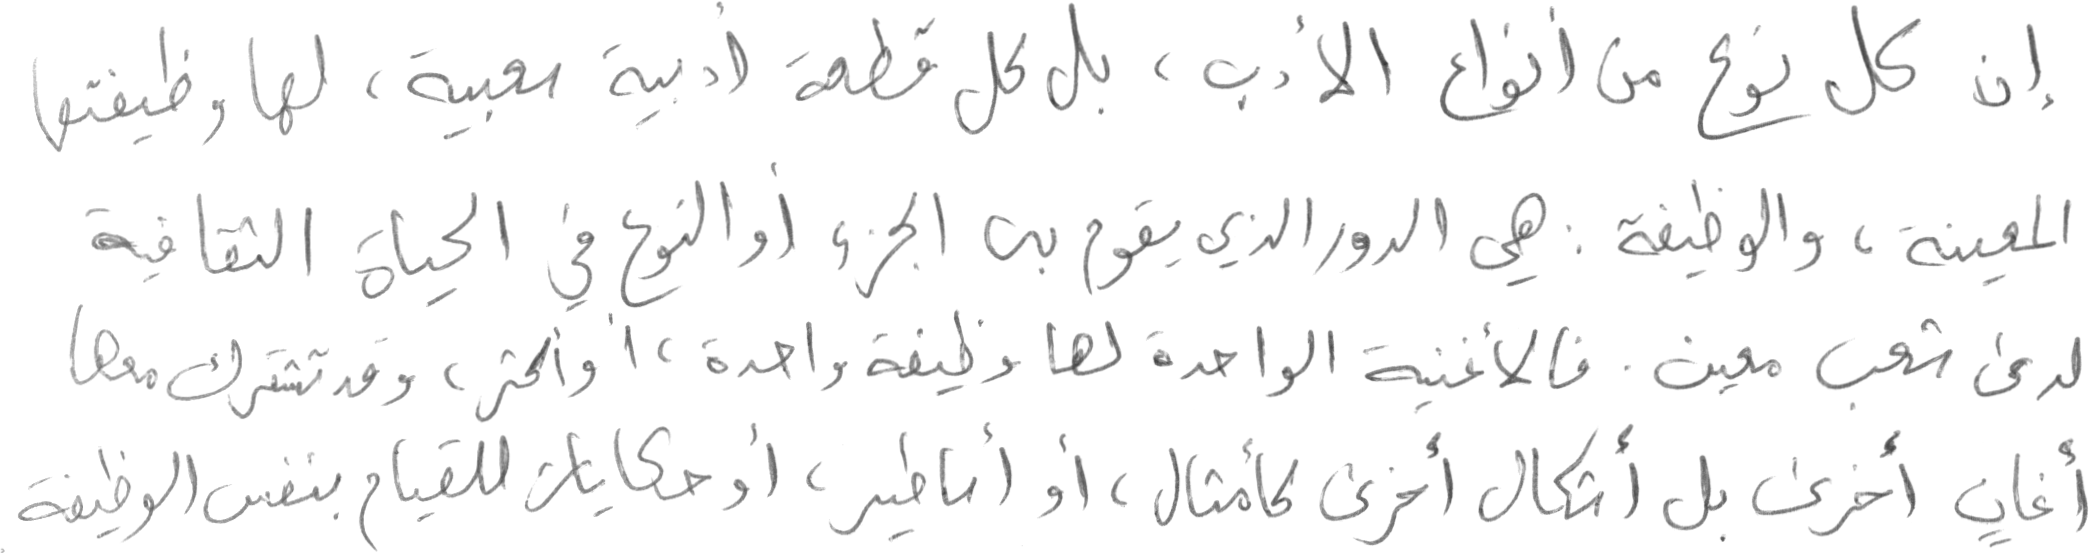 إن كل نوع من أنواع الأدب ، بل كل قطعة أدبية معينة ، لها وظيفتها
المعينة ، والوظيفة : هي الدور الذي يقوم به الجزء أو النوع في الحياة الثقافية
لدى شعب معين . فالأغنية الواحدة لها وظيفة واحدة ، أو أكثر ، وقد تشترك معها
أغاني أخرى بل أشكال أخرى كأمثال ، أو أساطير ، أو حكايات للقيام بنفس الوظيفة